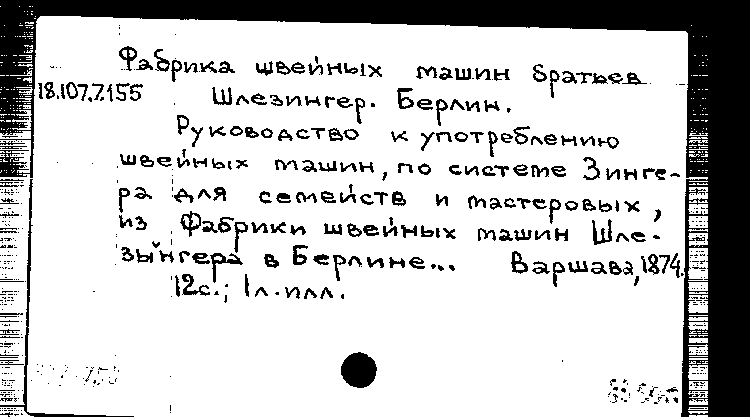 Фабрика швейных машин братьев
18.107.7.155 Шлезингер. Берлин.
Руководство к употреблению
швейных машин, по системе Зинге-
ра для семейств и мастеровых,
из Фабрики швейных машин Шле-
зынгера в Берлине... Варшава, 1874.
12с.; 1л. илл.